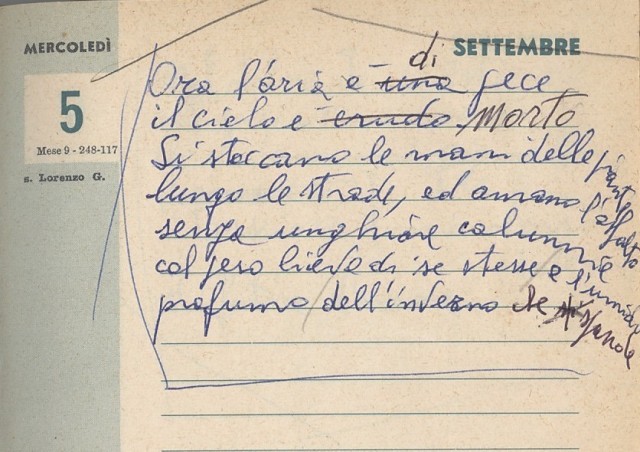 MERCOLEDÌ
SETTEMBRE
5
Mese 9 - 248-117
s. Lorenzo G.
di
Ora l'aria è una pece
il cielo è crudo morto
Si staccano le mani delle piante
lungo le strade, ed amano l'asfalto
senza unghiare calunnie
col peso lieve di se stesse e l'umido
profumo dell'inverno se si spande